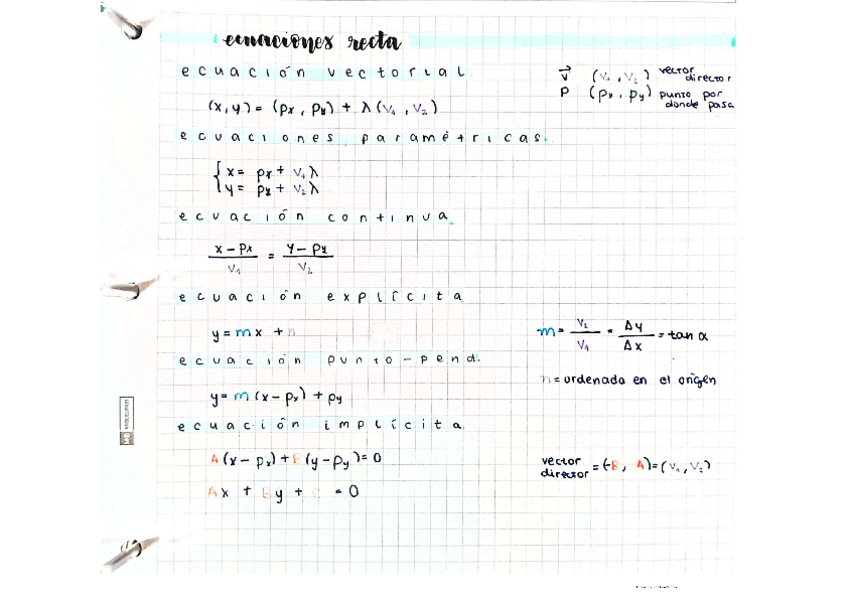 ecuaciones recta
ecuación vectorial
v⃗ (v₁, v₂) vector director
P (px, py) punto por donde pasa
(x,y) = (px, py) + λ(v₁, v₂)
ecuaciones paramétricas.
x = px + v₁λ
y = py + v₂λ
ecuación continua
x - px / v₁ = y - py / v₂
ecuación explícita
y = mx + n
m = v₂ / v₁ = Δy / Δx = tan α
ecuación punto-pend.
n = ordenada en el origen
y = m(x - px) + py
ecuación implícita
A(x - px) + B(y - py) = 0
vector director = (-B, A) = (v₁, v₂)
Ax + By + C = 0